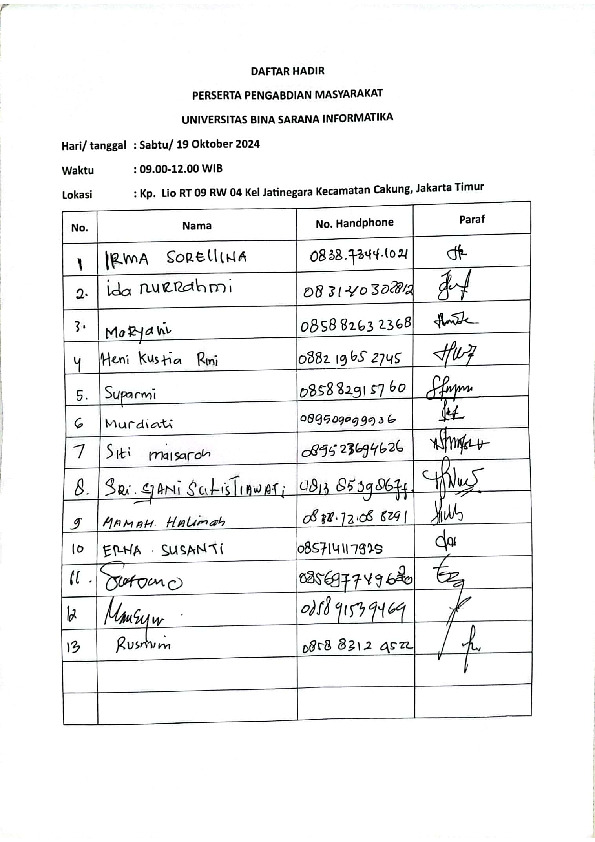 DAFTAR HADIR
PERSERTA PENGABDIAN MASYARAKAT
UNIVERSITAS BINA SARANA INFORMATIKA
Hari/ tanggal : Sabtu/ 19 Oktober 2024
Waktu : 09.00-12.00 WIB
Lokasi : Kp. Lio RT 09 RW 04 Kel Jatinegara Kecamatan Cakung, Jakarta Timur
No. Nama No. Handphone Paraf
1 IRMA SORELLINA 0838.7344.1021
2. ida nurrahmi
3. Maryani 0858 8263 2368
4 Heni Kustia Rini 0882 1965 2745
5. Suparmi 085882915760
6 Murdiati 089509099936
7 Siti maisaroh 089523694626
8. SRI. 
9 MAMAH. Halimah 0838.72.08 8291
10 ERNA. SUSANTI 085714117925
11.
12 085891539469
13 0858 8312 9522